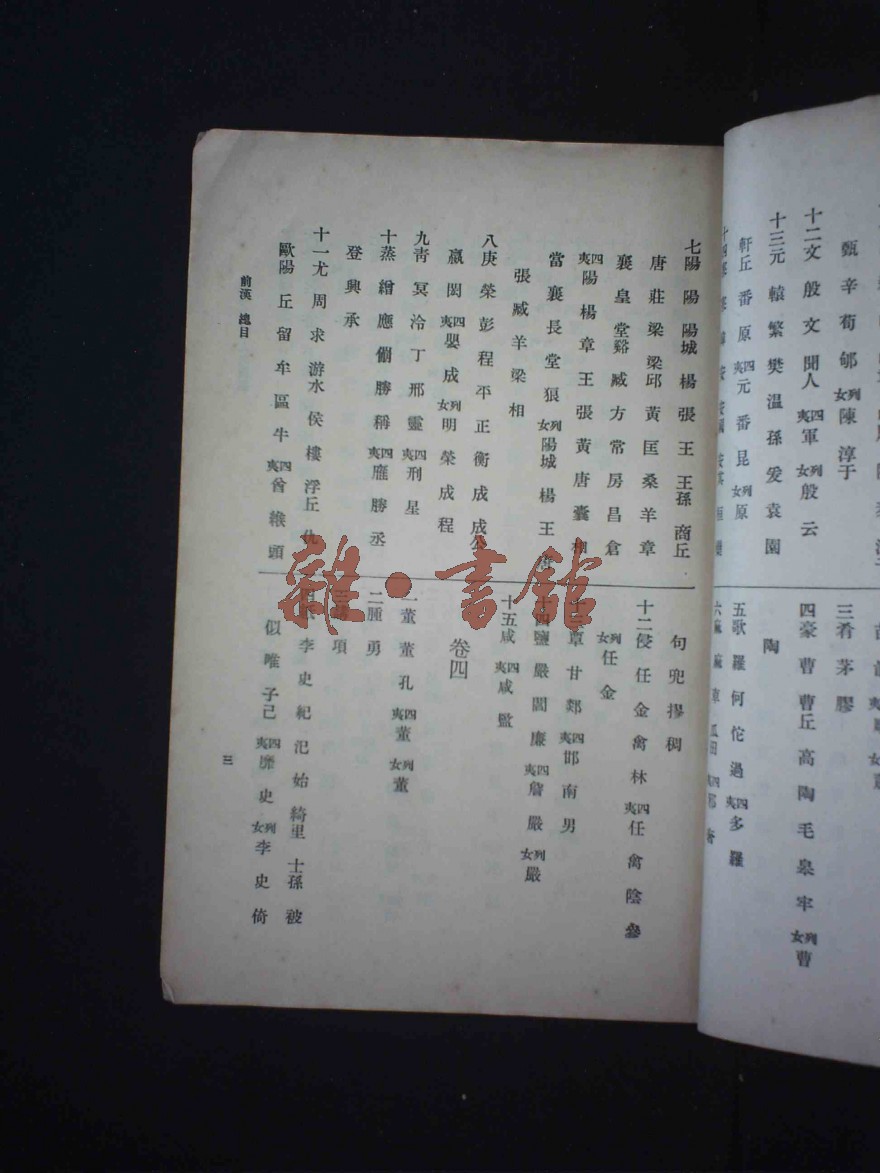 甄 辛 荀 郇 列女 陳 淳于
十二文 殷 文 聞人 四夷 軍 列女 殷 云
十三元 轅 繁 樊 溫 孫 爰 袁 園
軒丘 番 原 四夷 元 番 昆 列女 原
三肴 茅 膠
四豪 曹 曹丘 高 陶 毛 皋 牢 列女 曹
陶
五歌 羅 何 佗 過 四夷 多 羅
七陽 陽 陽城 楊 張 王 王孫 商丘
唐 莊 梁 梁邱 黃 匡 桑 羊 章
襄 皇 堂谿 臧 方 常 房 昌 倉
四夷 陽 楊 章 王 張 黃 唐 囊
當 襄 長 堂 狼 列女 陽城 楊 王
張 臧 羊 梁 相
八庚 榮 彭 程 平 正 衡 成 成公
嬴 閎 四夷 嬰 成 列女 明 榮 成 程
九青 冥 泠 丁 邢 靈 四夷 刑 星
十蒸 繒 應 倗 勝 稱 四夷 鷹 勝 丞
登 興 承
十一尤 周 求 游水 侯 樓 浮丘 仇
歐陽 丘 留 牟 區 牛 四夷 酋 緱 頭
句 兜 摎 稠
十二侵 任 金 禽 林 四夷 任 禽 陰 參
列女 任 金
甘 郯 四夷 邯 南 男
鹽 嚴 閻 廉 四夷 詹 嚴 列女 嚴
十五咸 四夷 咸 監
卷四
一董 董 孔 四夷 董 列女 董
二腫 勇
項
李 史 紀 汜 始 綺里 士孫 被
似 唯 子己 四夷 靡 史 列女 李 史 倚
前漢 總目
三
雜·書館